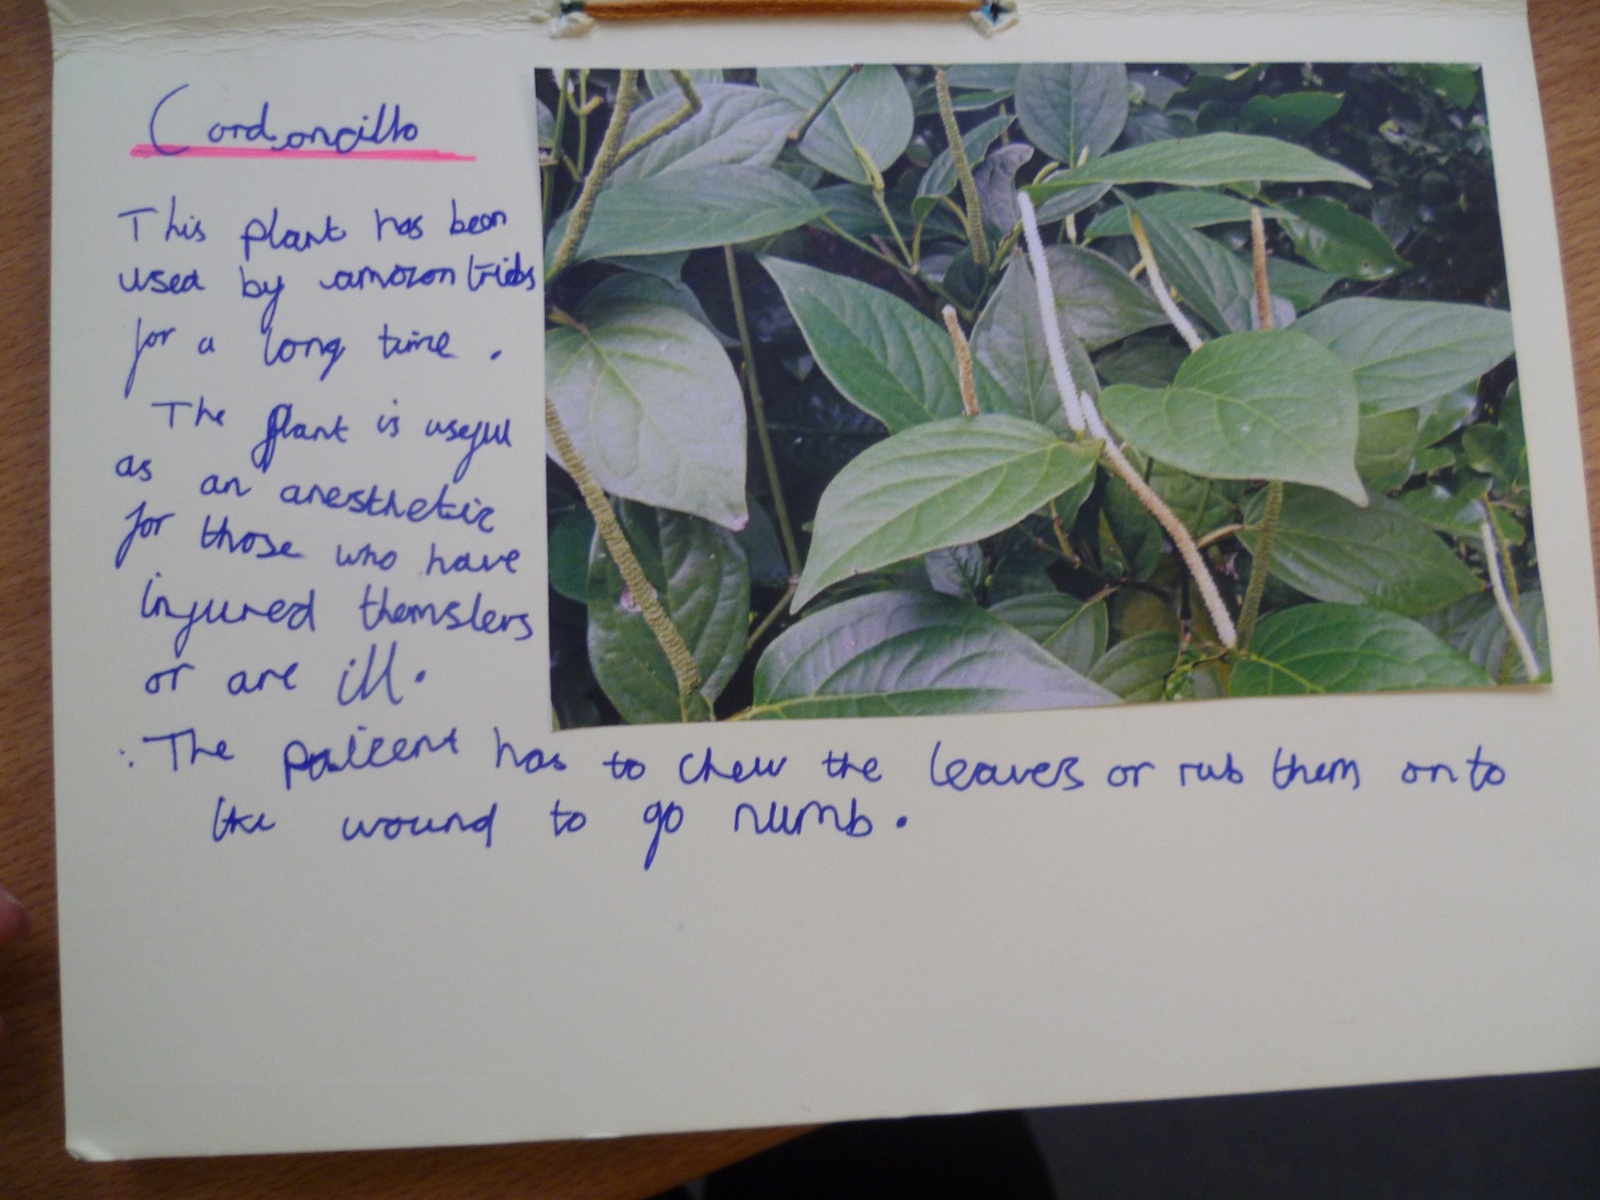 Cordoncillo
This plant has been
used by amazon tribs
for a long time .
The plant is useful
as an anesthetic
for those who have
injured themslers
or are ill.
. The patient has to chew the leaves or rub them onto
the wound to go numb.